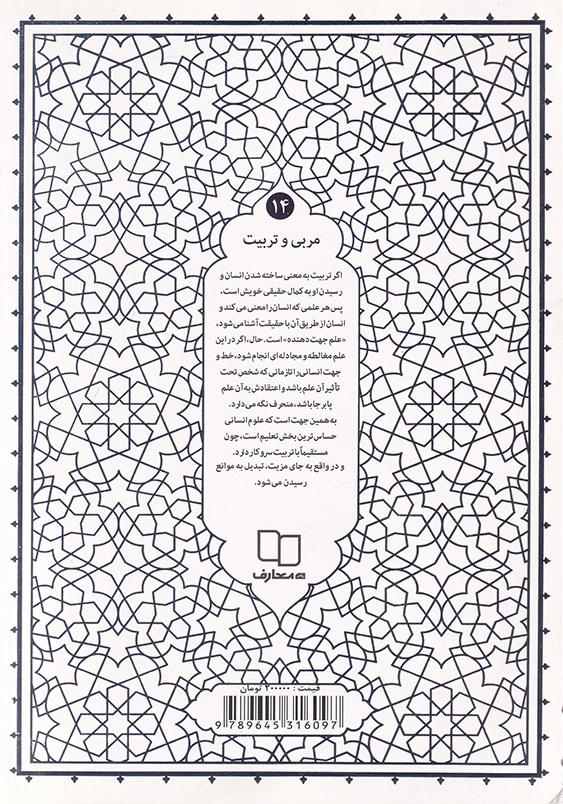 ۱۴
مربی و تربیت
اگر تربیت به معنی ساخته شدن انسان و
رسیدن او به کمال حقیقی خویش است،
پس هر علمی که انسان را معنی می‌کند و
انسان از طریق آن با حقیقت آشنا می‌شود،
«علم جهت دهنده» است. حال، اگر در این
علم مغالطه و مجادله‌ای انجام شود، خط و
جهت انسانی را تا زمانی که شخص تحت
تأثیر آن علم باشد و اعتقادش به آن علم
پابرجا باشد، منحرف نگه می‌دارد.
به همین جهت است که علوم انسانی
حساس‌ترین بخش تعلیم است، چون
مستقیماً با تربیت سروکار دارد.
و در واقع به جای مزیت، تبدیل به موانع
رسیدن می‌شود.
معارف
قیمت: ۲۰۰۰۰۰ تومان
9 789645 316097